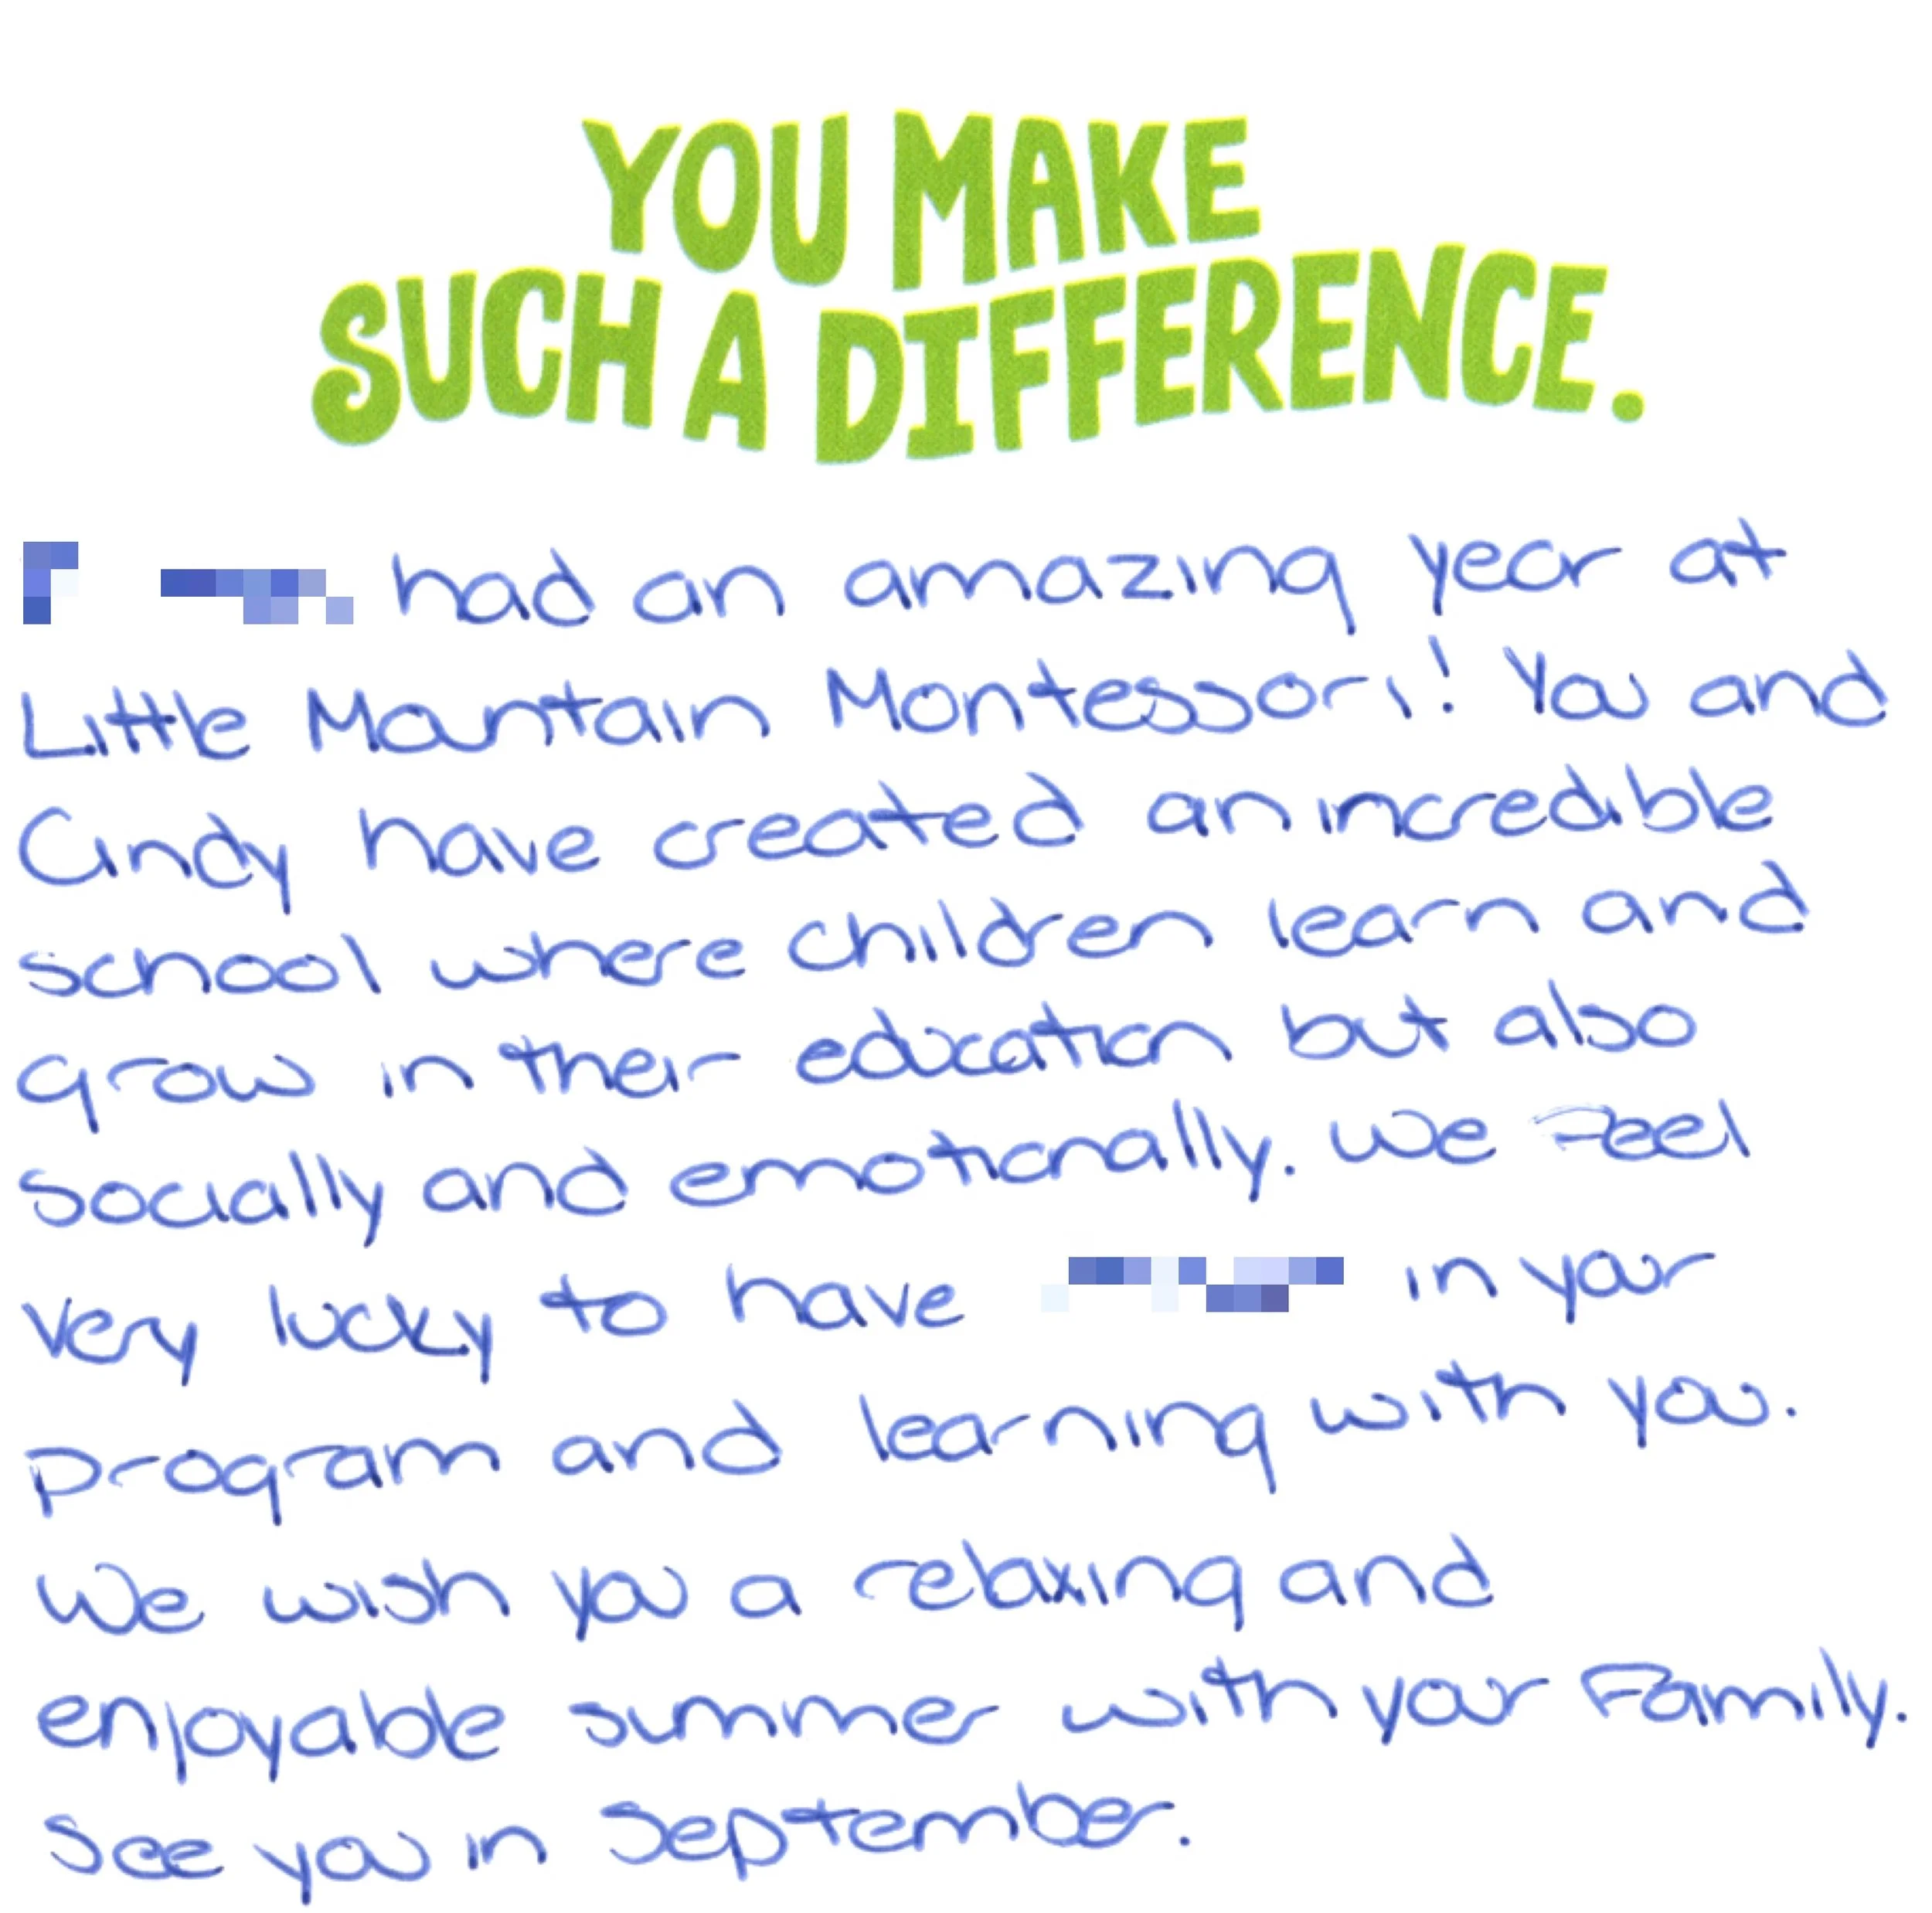 YOU MAKE
SUCH A DIFFERENCE.
had an amazing year at
Little Mountain Montessori! You and
Cindy have created an incredible
school where children learn and
grow in their education but also
socially and emotionally. We Feel
very lucky to have in your
program and learning with you.
We wish you a relaxing and
enjoyable summer with your Family.
See you in September.